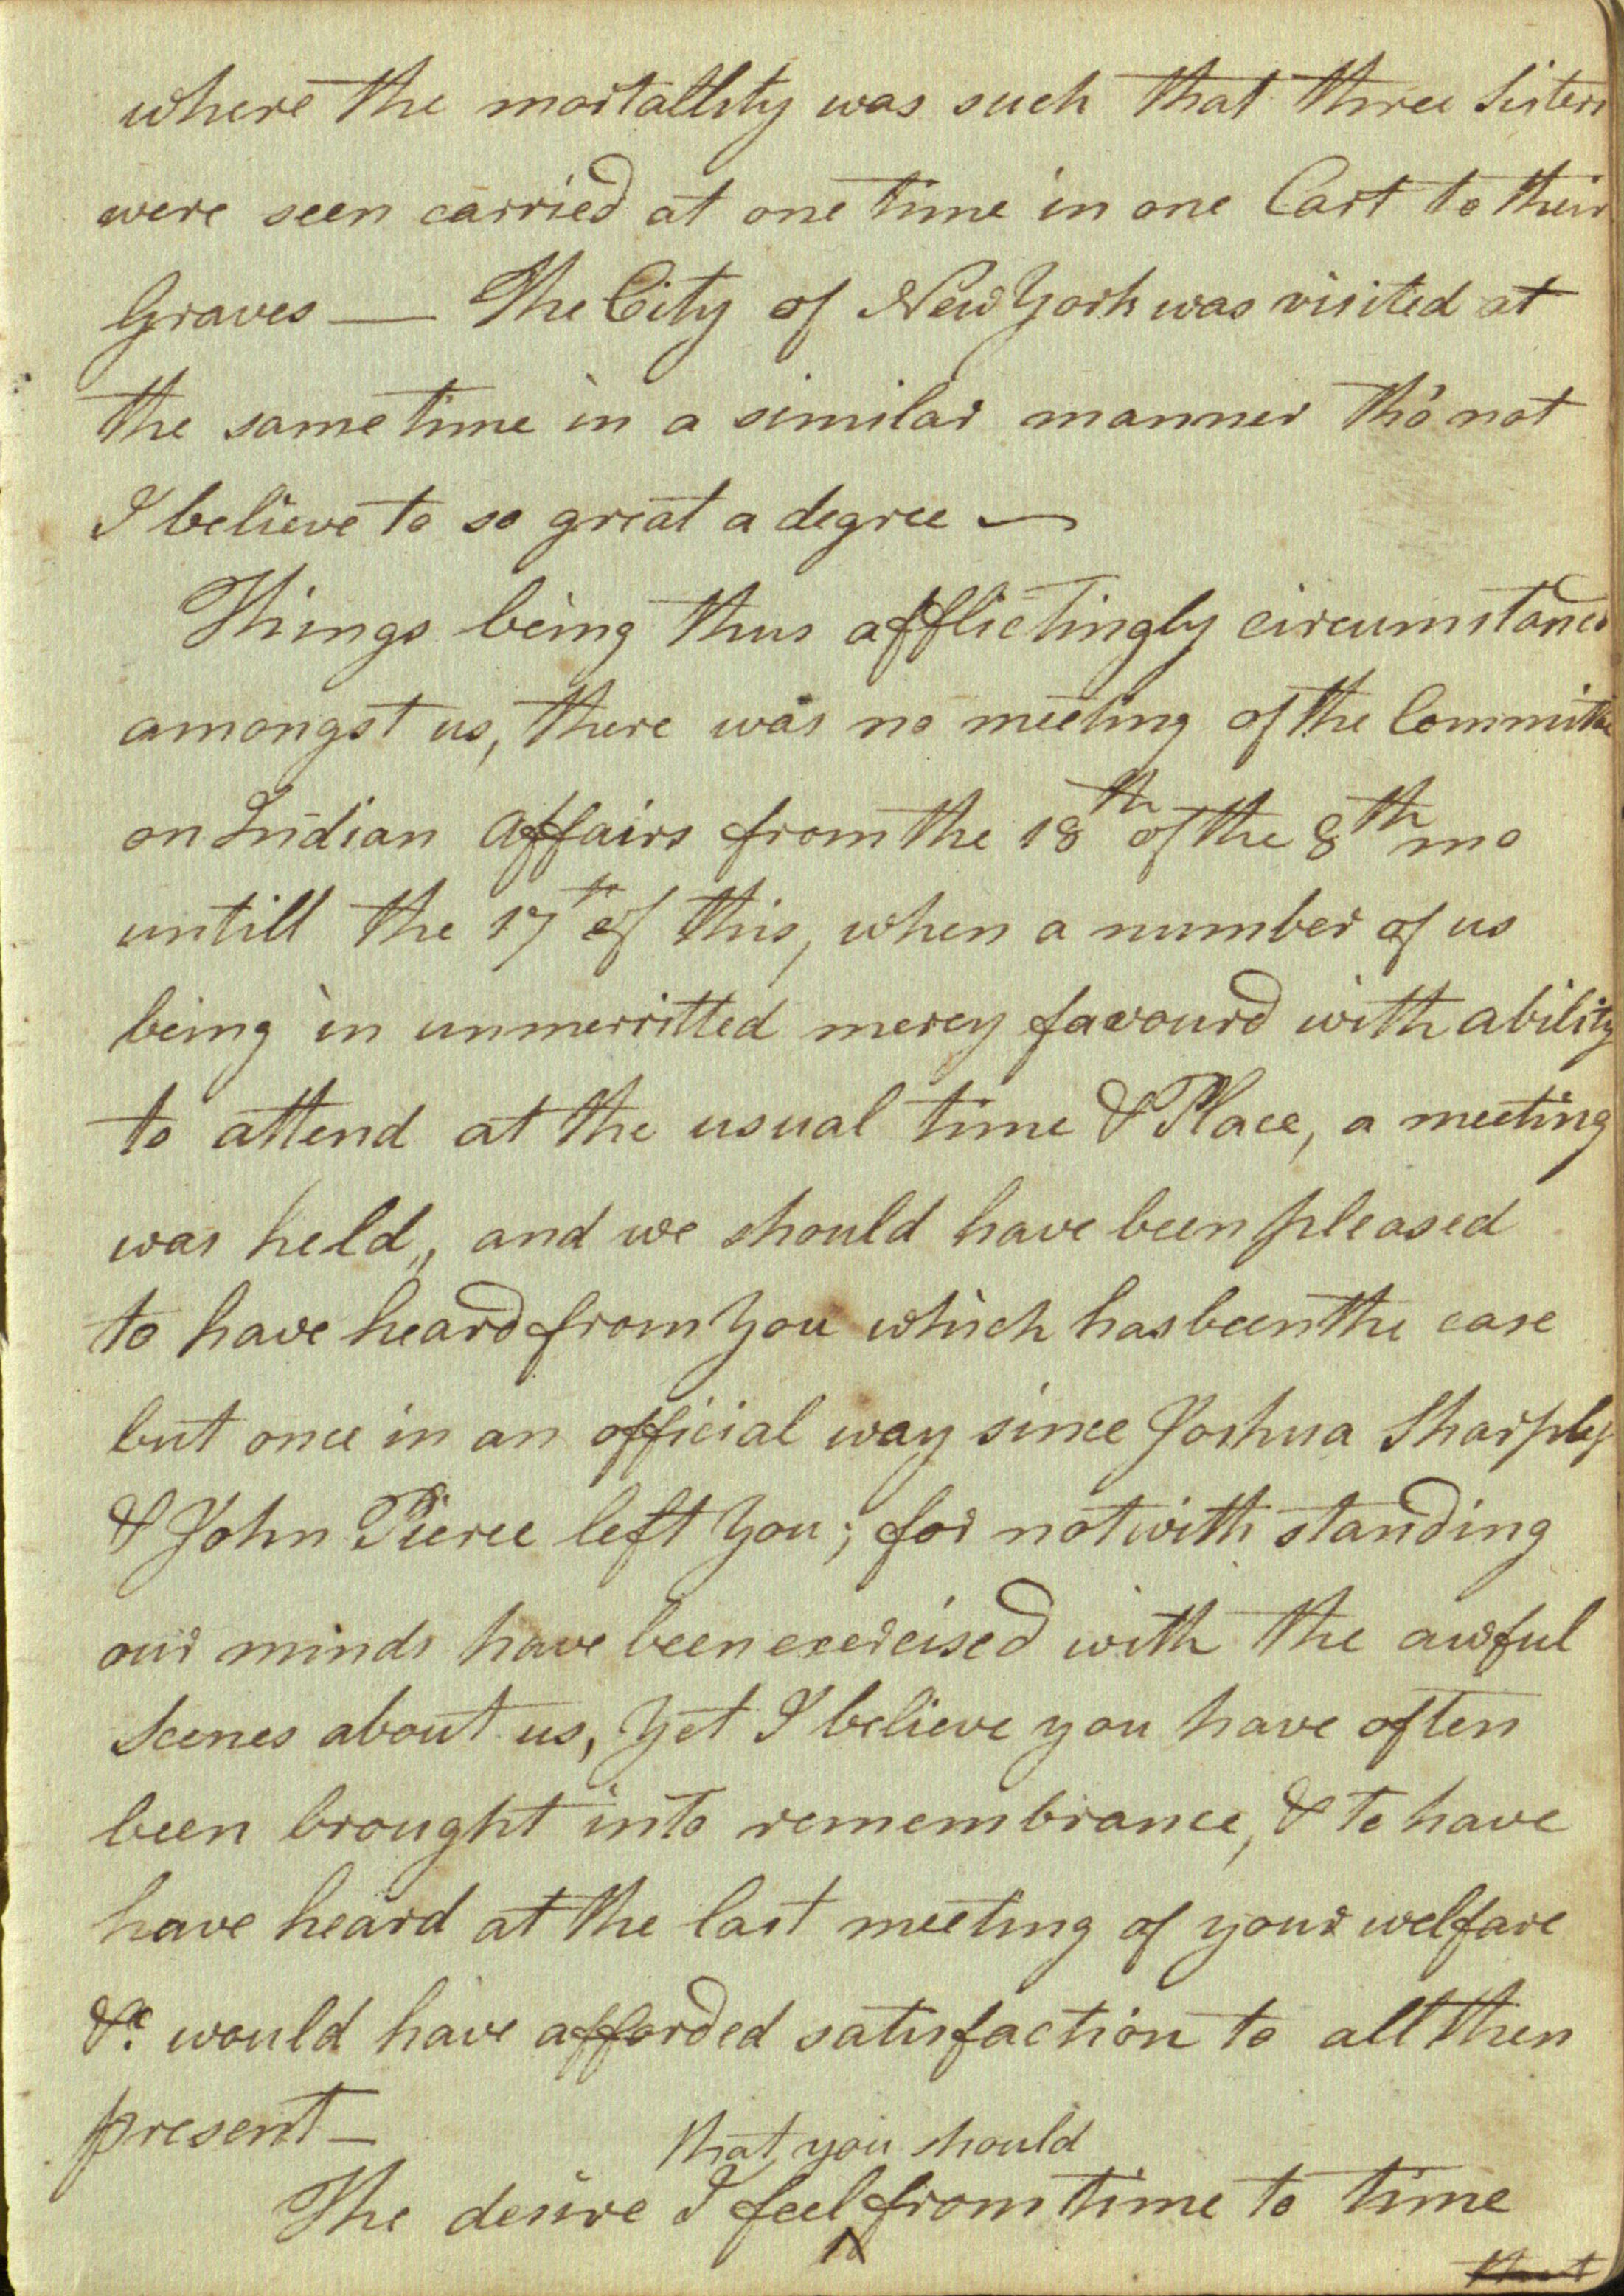 where the mortallity was such that three Sisters
were seen carried at one time in one Cart to their
Graves — The City of New York was visited at
the same time in a similar manner tho' not
I believe to so great a degree —
Things being thus afflictingly circumstanced
amongst us, there was no meeting of the Committee
on Indian affairs from the 18th of the 8th mo
untill the 17th of this, when a number of us
being in unmerritted mercy favourd with ability
to attend at the usual time & Place, a meeting
was held, and we should have been pleased
to have heard from You which has been the case
but once in an official way since Joshua Sharply
& John Pierce left You; for notwithstanding
our minds have been exercised with the awful
Scenes about us, Yet I believe you have often
been brought into remembrance, & to have
have heard at the last meeting of your welfare
&c. would have afforded satisfaction to all then
present —
that you should
The desire I feel ^ from time to time
that